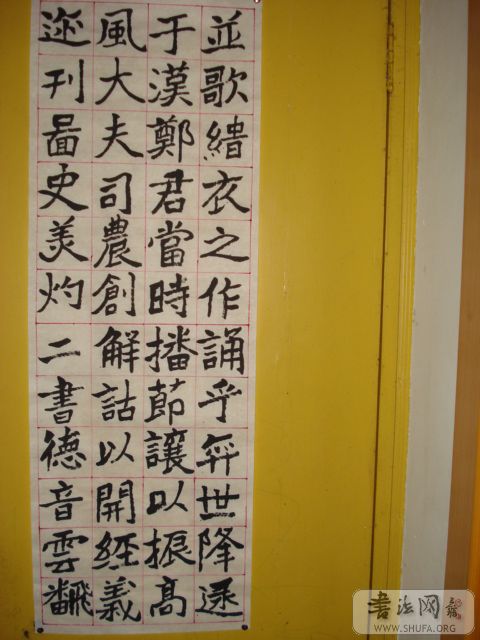 並歌緇衣之作誦乎弈世降逮
于漢鄭君當時播節讓以振高
風大夫司農創解詁以開經義
迹刊啚史美灼二書德音雲飜
书法网
WWW.SHUFA.ORG